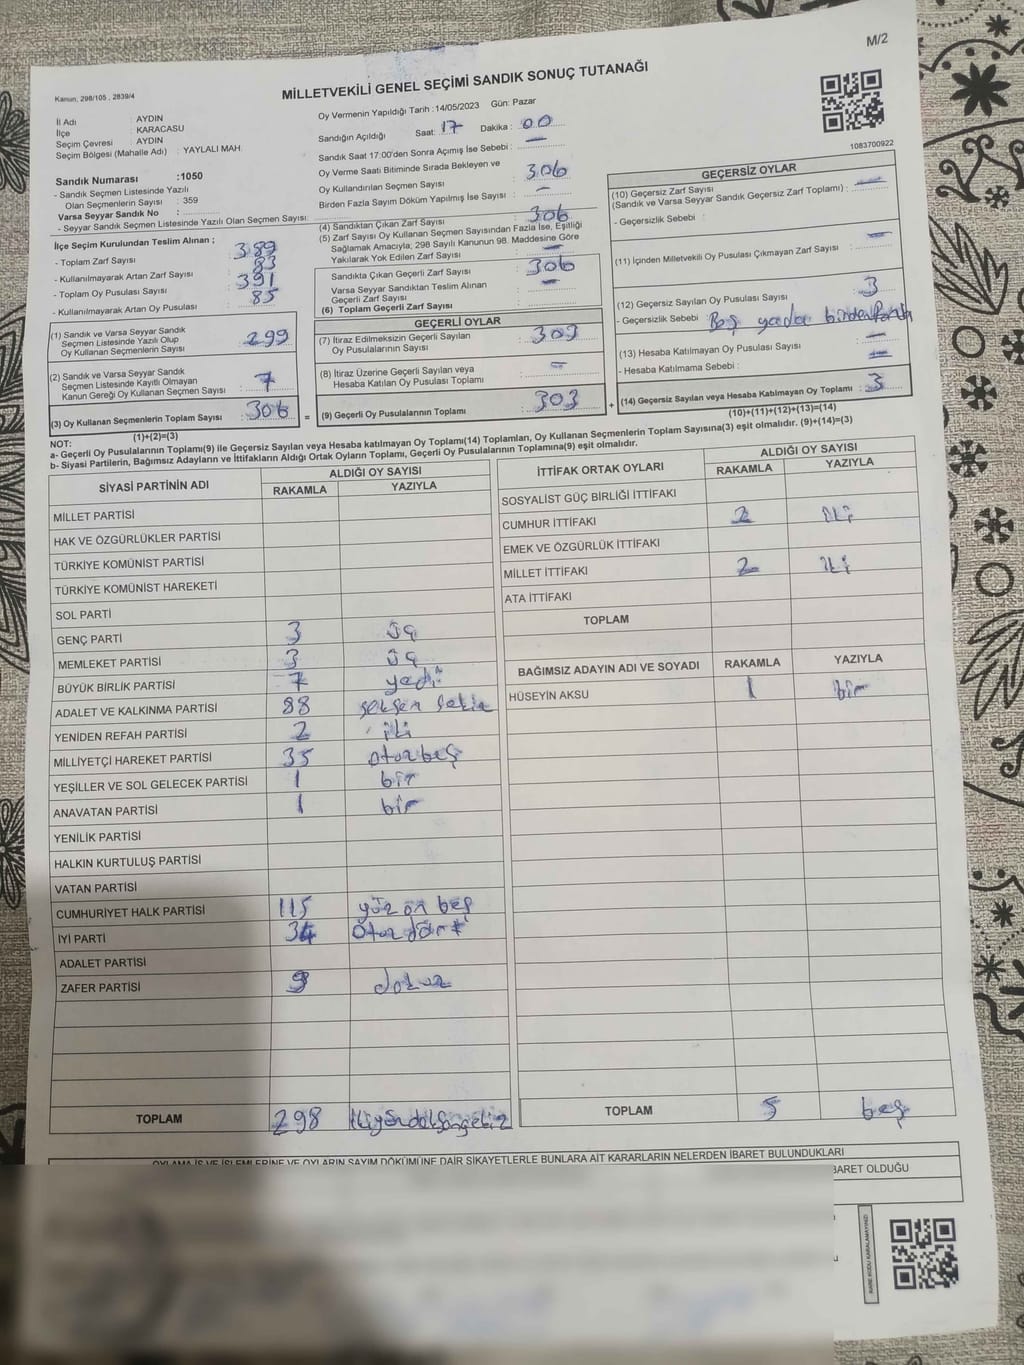 M/2
Kanun, 298/105 , 2839/4
MİLLETVEKİLİ GENEL SEÇİMİ SANDIK SONUÇ TUTANAĞI
İl Adı : AYDIN
İlçe : KARACASU
Seçim Çevresi : AYDIN
Seçim Bölgesi (Mahalle Adı) : YAYLALI MAH.
Oy Vermenin Yapıldığı Tarih : 14/05/2023 Gün: Pazar
Sandığın Açıldığı Saat: 17 Dakika : 00
Sandık Saat 17:00'den Sonra Açımış İse Sebebi : —
Oy Verme Saati Bitiminde Sırada Bekleyen ve
Oy Kullandırılan Seçmen Sayısı : 306
Birden Fazla Sayım Döküm Yapılmış İse Sayısı : —
1083700922
Sandık Numarası :1050
- Sandık Seçmen Listesinde Yazılı
Olan Seçmenlerin Sayısı : 359
Varsa Seyyar Sandık No :
- Seyyar Sandık Seçmen Listesinde Yazılı Olan Seçmen Sayısı:
İlçe Seçim Kurulundan Teslim Alınan ;
- Toplam Zarf Sayısı : 389
- Kullanılmayarak Artan Zarf Sayısı : 83
- Toplam Oy Pusulası Sayısı : 391
- Kullanılmayarak Artan Oy Pusulası : 85
(1) Sandık ve Varsa Seyyar Sandık
Seçmen Listesinde Yazılı Olup
Oy Kullanan Seçmenlerin Sayısı : 299
(2) Sandık ve Varsa Seyyar Sandık
Seçmen Listesinde Kayıtlı Olmayan
Kanun Gereği Oy Kullanan Seçmen Sayısı : 7
(3) Oy Kullanan Seçmenlerin Toplam Sayısı : 306
(1)+(2)=(3)
(4) Sandıktan Çıkan Zarf Sayısı : 306
(5) Zarf Sayısı Oy Kullanan Seçmen Sayısından Fazla İse, Eşitliği
Sağlamak Amacıyla, 298 Sayılı Kanunun 98. Maddesine Göre
Yakılarak Yok Edilen Zarf Sayısı : —
Sandıkta Çıkan Geçerli Zarf Sayısı : 306
Varsa Seyyar Sandıktan Teslim Alınan
Geçerli Zarf Sayısı : —
(6) Toplam Geçerli Zarf Sayısı :
GEÇERLİ OYLAR
(7) İtiraz Edilmeksizin Geçerli Sayılan
Oy Pusulalarının Sayısı : 303
(8) İtiraz Üzerine Geçerli Sayılan veya
Hesaba Katılan Oy Pusulası Toplamı : —
= (9) Geçerli Oy Pusulalarının Toplamı : 303
GEÇERSİZ OYLAR
(10) Geçersiz Zarf Sayısı
(Sandık ve Varsa Seyyar Sandık Geçersiz Zarf Toplamı) : —
- Geçersizlik Sebebi :
(11) İçinden Milletvekili Oy Pusulası Çıkmayan Zarf Sayısı : —
(12) Geçersiz Sayılan Oy Pusulası Sayısı : 3
- Geçersizlik Sebebi : Boş yada birden fazla
(13) Hesaba Katılmayan Oy Pusulası Sayısı : —
- Hesaba Katılmama Sebebi : —
+ (14) Geçersiz Sayılan veya Hesaba Katılmayan Oy Toplamı : 3
(10)+(11)+(12)+(13)=(14)
NOT:
a- Geçerli Oy Pusulalarının Toplamı(9) ile Geçersiz Sayılan veya Hesaba katılmayan Oy Toplamı(14) Toplamları, Oy Kullanan Seçmenlerin Toplam Sayısına(3) eşit olmalıdır. (9)+(14)=(3)
b- Siyasi Partilerin, Bağımsız Adayların ve İttifakların Aldığı Ortak Oyların Toplamı, Geçerli Oy Pusulalarının Toplamına(9) eşit olmalıdır.
SİYASİ PARTİNİN ADI ALDIĞI OY SAYISI
RAKAMLA YAZIYLA
MİLLET PARTİSİ
HAK VE ÖZGÜRLÜKLER PARTİSİ
TÜRKİYE KOMÜNİST PARTİSİ
TÜRKİYE KOMÜNİST HAREKETİ
SOL PARTİ
GENÇ PARTİ 3 üç
MEMLEKET PARTİSİ 3 üç
BÜYÜK BİRLİK PARTİSİ 7 yedi
ADALET VE KALKINMA PARTİSİ 88 seksen sekiz
YENİDEN REFAH PARTİSİ 2 iki
MİLLİYETÇİ HAREKET PARTİSİ 35 otuzbeş
YEŞİLLER VE SOL GELECEK PARTİSİ 1 bir
ANAVATAN PARTİSİ 1 bir
YENİLİK PARTİSİ
HALKIN KURTULUŞ PARTİSİ
VATAN PARTİSİ
CUMHURİYET HALK PARTİSİ 115 yüz on beş
İYİ PARTİ 34 Otuz dört
ADALET PARTİSİ
ZAFER PARTİSİ 9 dokuz
TOPLAM 298 ikiyüzdoksansekiz
İTTİFAK ORTAK OYLARI ALDIĞI OY SAYISI
RAKAMLA YAZIYLA
SOSYALİST GÜÇ BİRLİĞİ İTTİFAKI
CUMHUR İTTİFAKI 2 iki
EMEK VE ÖZGÜRLÜK İTTİFAKI
MİLLET İTTİFAKI 2 iki
ATA İTTİFAKI
TOPLAM
BAĞIMSIZ ADAYIN ADI VE SOYADI RAKAMLA YAZIYLA
HÜSEYİN AKSU 1 bir
TOPLAM 5 beş
OYLAMA İŞ VE İŞLEMLERİNE VE OYLARIN SAYIM DÖKÜMÜNE DAİR ŞİKAYETLERLE BUNLARA AİT KARARLARIN NELERDEN İBARET BULUNDUKLARI
BARET OLDUĞU
KARE KODU KARALAMAYINIZ!